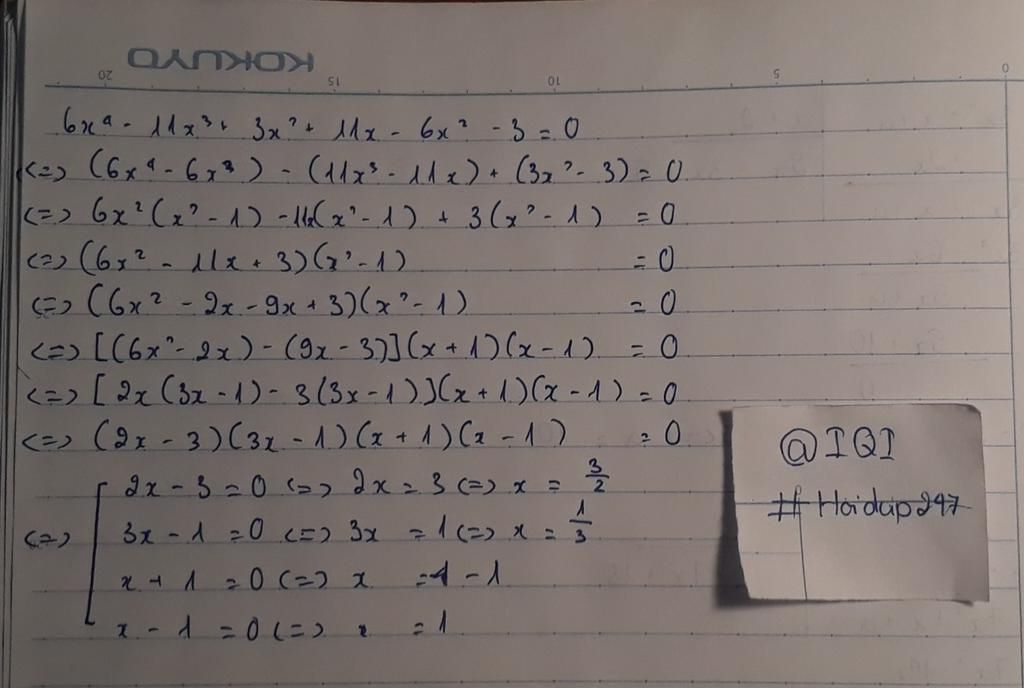 KOKUYO
20 15 10 5 0
6x⁴ - 11x³ + 3x² + 11x - 6x² - 3 = 0
<=> (6x⁴ - 6x²) - (11x³ - 11x) + (3x² - 3) = 0
<=> 6x²(x² - 1) - 11x(x² - 1) + 3(x² - 1) = 0
<=> (6x² - 11x + 3)(x² - 1) = 0
<=> (6x² - 2x - 9x + 3)(x² - 1) = 0
<=> [(6x² - 2x) - (9x - 3)](x + 1)(x - 1) = 0
<=> [2x(3x - 1) - 3(3x - 1)](x + 1)(x - 1) = 0
<=> (2x - 3)(3x - 1)(x + 1)(x - 1) = 0
2x - 3 = 0 <=> 2x = 3 <=> x = 3/2
<=> 3x - 1 = 0 <=> 3x = 1 <=> x = 1/3
x + 1 = 0 <=> x = - 1
x - 1 = 0 <=> x = 1
@IQI
#Hoidap247